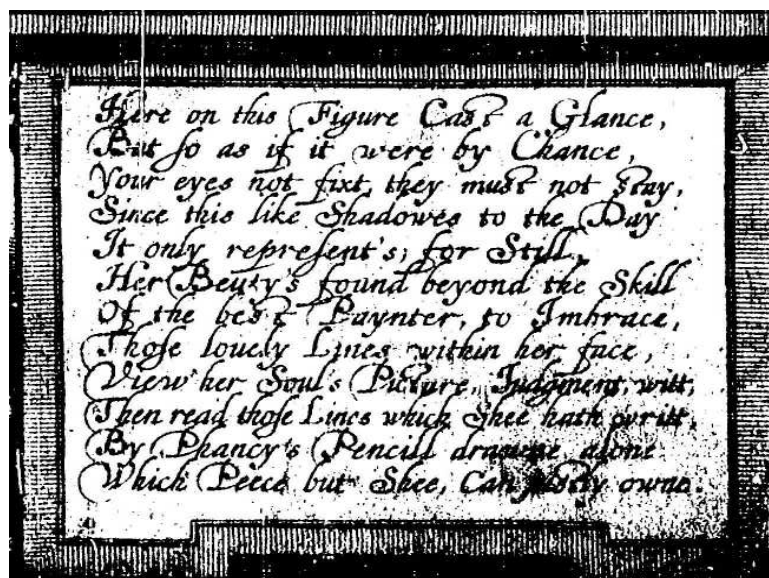 Here on this Figure Cast a Glance,
But so as if it were by Chance,
Your eyes not fixt, they must not stay,
Since this like Shadowes to the Day
It only represent's; for Still,
Her Beuty's found beyond the Skill
Of the best Paynter, to Imbrace,
Those lovely Lines within her face,
View her Soul's Picture, Judgment, witt,
Then read those Lines which Shee hath writt,
By Phancy's Pencill drawne alone
Which Peece but Shee, Can justly owne.